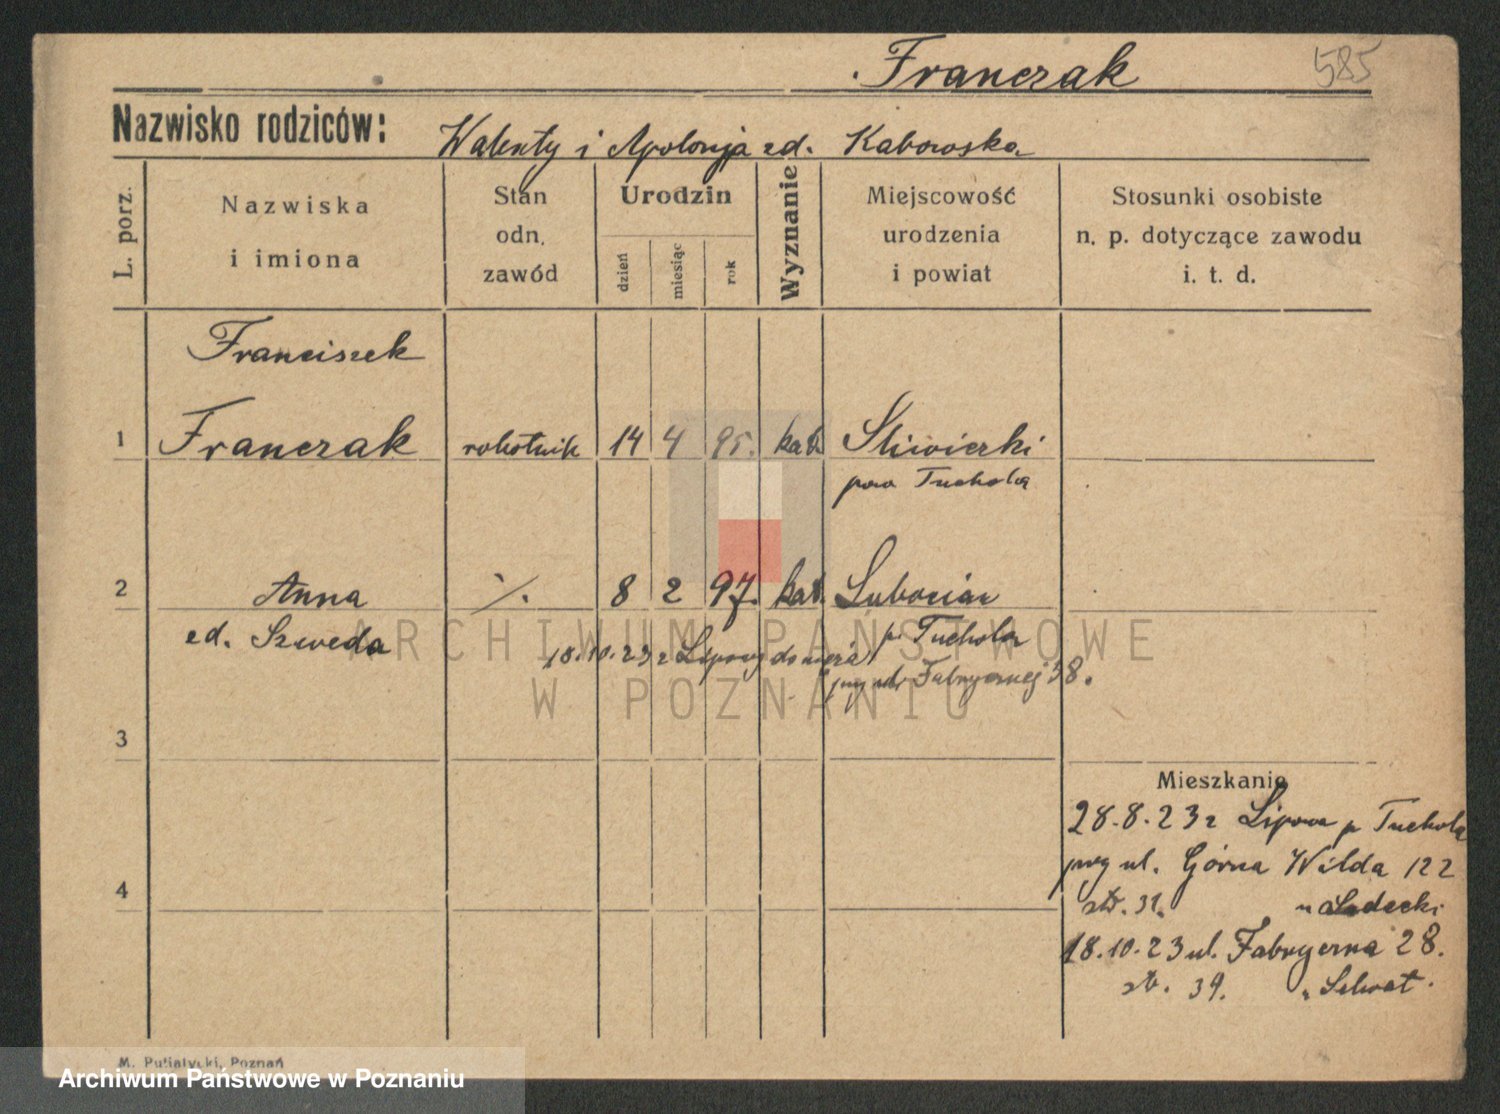 Franczak 585
Nazwisko rodziców: Walenty i Apolonja zd. Kabowska
L. porz. Nazwiska i imiona Stan odn. zawód Urodzin dzień miesiąc rok Wyznanie Miejscowość urodzenia i powiat Stosunki osobiste n. p. dotyczące zawodu i. t. d.
Franciszek
1 Franczak robotnik 14 4 95. kat. Śliwiczki
pow Tuchola
2 Anna ./. 8 2 97. kat. Lubocian
zd. Szweda p. Tuchola
18.10.23 z Lipowy do męża przy ul. Fabrycznej 38.
3
Mieszkanie
28.8.23 z Lipowa p Tuchola
przy ul. Górna Wilda 122
4
str. 31. u Sadecki
18.10.23 ul. Fabryczna 28.
str. 39.
M. Putiatycki, Poznań
ARCHIWUM PAŃSTWOWE
W POZNANIU
Archiwum Państwowe w Poznaniu